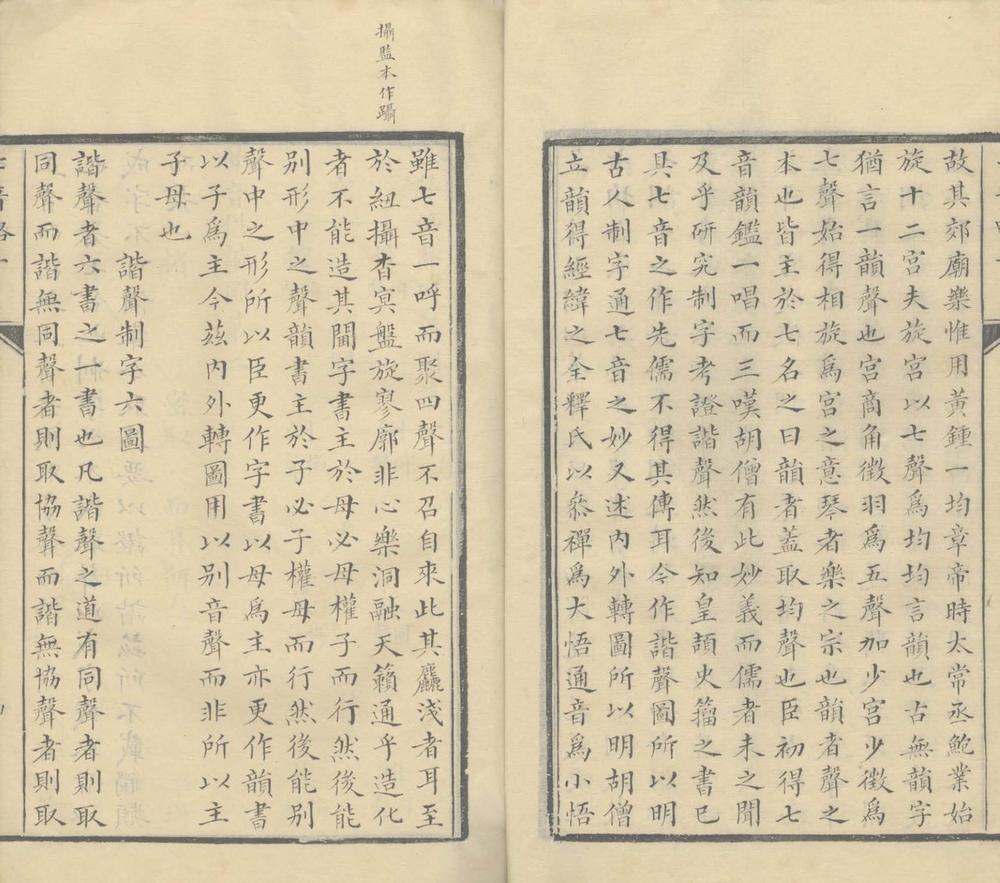 故其郊廟樂惟用黃鍾一均章帝時太常丞鮑業始
旋十二宫夫旋宫以七聲爲均均言韻也古無韻字
猶言一韻聲也宫商角徵羽爲五聲加少宫少徵爲
七聲始得相旋爲宫之意琴者樂之宗也韻者聲之
本也皆主於七名之曰韻者蓋取均聲也臣初得七
音韻鑑一唱而三嘆胡僧有此妙義而儒者未之聞
及乎研究制字考證諧聲然後知皇頡史籀之書已
具七音之作先儒不得其傳耳今作諧聲圖所以明
古人制字通七音之妙又述内外轉圖所以明胡僧
立韻得經緯之全釋氏以叅禪爲大悟通音爲小悟
攝監本作躡
雖七音一呼而聚四聲不召自來此其麤淺者耳至
於紐攝杳㝠盤旋寥廓非心樂洞融天籟通乎造化
者不能造其閫字書主於母必母權子而行然後能
别形中之聲韻書主於子必子權母而行然後能别
聲中之形所以臣更作字書以母爲主亦更作韻書
以子爲主今茲内外轉圖用以别音聲而非所以主
子母也
諧聲制字六圖
諧聲者六書之一書也凡諧聲之道有同聲者則取
同聲而諧無同聲者則取協聲而諧無協聲者則取